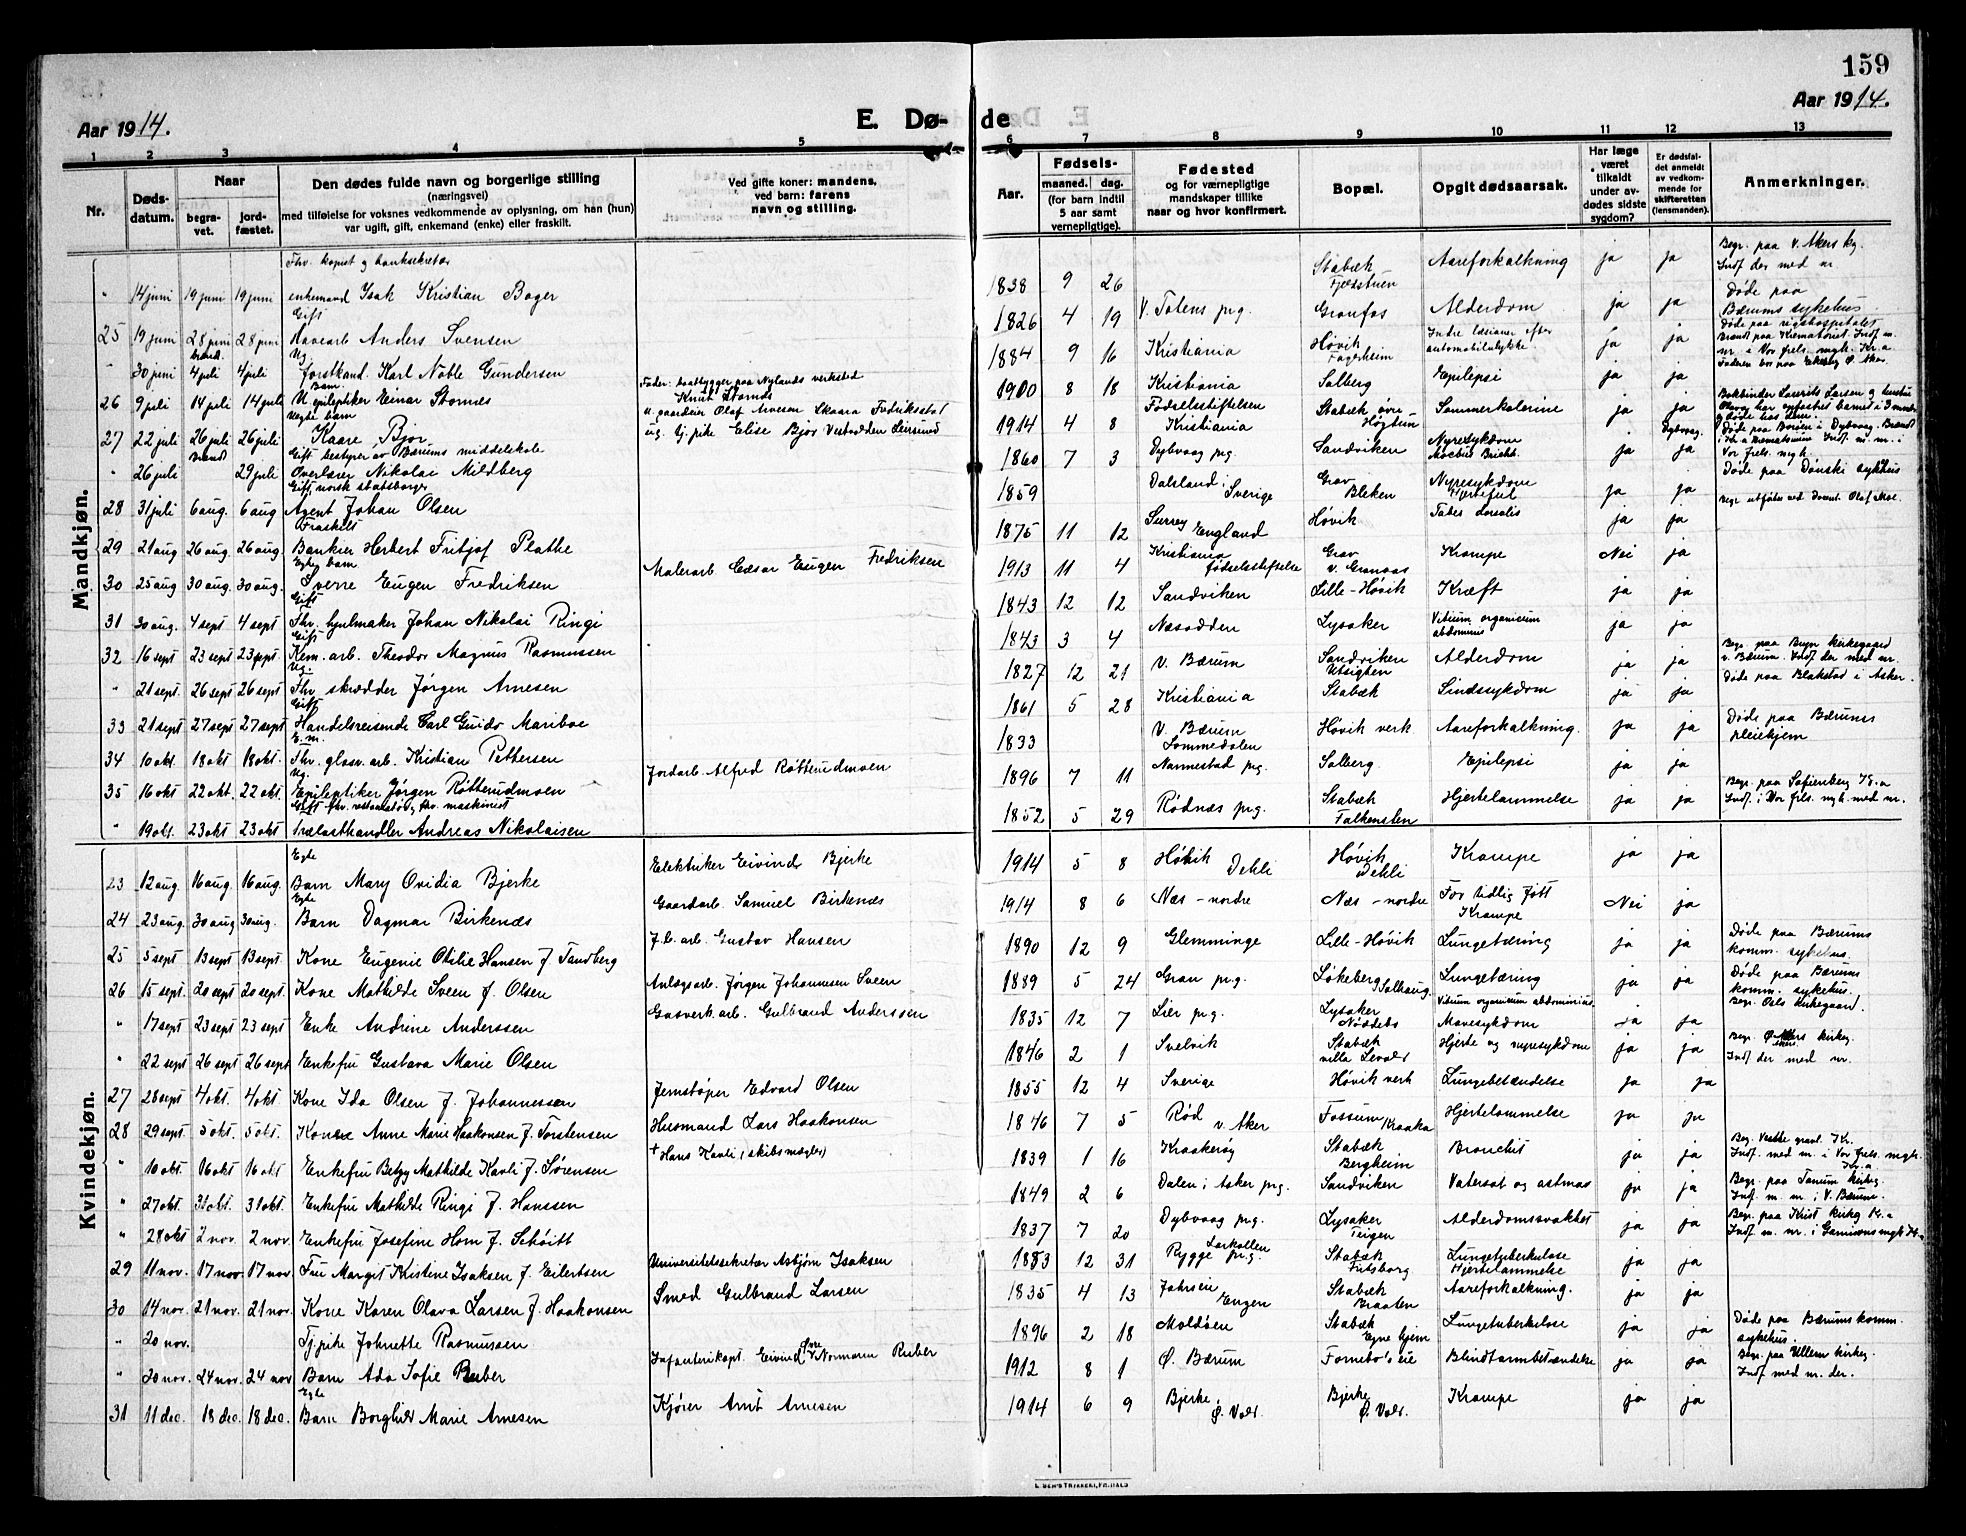 159
Aar 1914.
E. Dø- de
Aar 1914.
1 2 3 4 5 6 7 8 9 10 11 12 13
Nr.
Døds-
datum.
Naar
begra-
vet.
jord-
fæstet.
Den dødes fulde navn og borgerlige stilling
(næringsvei)
med tilføielse for voksnes vedkommende av oplysning, om han (hun)
var ugift, gift, enkemand (enke) eller fraskilt.
Ved gifte koner: mandens,
ved barn: farens
navn og stilling.
Aar.
Fødsels-
maaned. dag.
(for barn indtil
5 aar samt
vernepligtige).
Fødested
og for værnepligtige
mandskaper tillike
naar og hvor konfirmert.
Bopæl.
Opgit dødsaarsak.
Har læge
været
tilkaldt
under av-
dødes sidste
sygdom?
Er dødsfal-
det anmeldt
av vedkom-
mende for
skifteretten
(lensmanden).
Anmerkninger.
Mandkjøn.
" 14 juni 19 juni 19 juni enkemand Isak Kristian Boger 1838 9 26 Stabæk Aareforkalkning ja ja Begr. paa V. Akers kg.
Indf. der med nr.
Gift
25 19 juni 28 juni 28 juni Havearb Anders Svensen 1826 4 19 V. Totens prg. Granfos Alderdom ja ja Døde paa
Bærums sykehus
Ug.
" 30 juni 4 juli 4 juli forstkand. Karl Noble Gundersen 1884 9 16 Kristiania Høvik Fagerheim Indre læsioner efter automobilulykke ja ja
Barn
26 9 juli 14 juli 14 juli epileptiker Einar Stornæs Knut Stornæs 1900 8 18 Kristiania Solberg Epilepsi ja ja
Uegte barn
27 22 juli 26 juli 26 juli Kaare Bjor 1914 4 8 Fødselsstiftelsen Kristiania Stabæk Sommerkolerine ja ja
Gift bestyrer av Bærums middelskole
" 26 juli 29 juli Overlærer Nikolai Mildberg 1860 7 3 Dybvaag prg. Sandviken Nyresykdom ja ja
Gift norsk statsborger
28 31 juli 6 aug. 6 aug Agent Johan Olsen 1859 Dalsland i Sverige Grav Bleken Nyresykdom Hjertefeil ja ja Døde paa
Fraskilt
29 21 aug 26 aug. 26 aug. Bankier Herbert Fritjof Plathe 1875 11 12 Surrey England Høvik Tabes dorsalis ja ja
Egte barn
30 25 aug 30 aug. 30 aug. Sverre Eugen Fredriksen Malerarb Cæsar Eugen Fredriksen 1913 11 4 Kristiania fødselsstiftelse Grav Krampe Nei ja
Gift
31 30 aug. 4 sept 4 sept Fhv. hjulmaker Johan Nikolai Ringi 1843 12 12 Sandviken Lille-Høvik Kræft ja ja
Gift
32 16 sept 23 sept 23 sept Kem. arb. Theodor Magnus Rasmussen 1843 3 4 Næsodden Lysaker Vitium organicum abdominis ja ja
Ug.
" 21 sept. 26 sept 26 sept Fhv skrædder Jørgen Arnesen 1827 12 21 V. Bærum Sandviken Utsigten Alderdom ja ja Begr. paa Bryn kirkegaard
V. Bærum. Indf. der med nr.
Gift
33 21 sept 27 sept 27 sept Handelsreisende Carl Guido Mariboe 1861 5 28 Kristiania Stabæk Sindssykdom ja ja Døde paa Blakstad i Asker.
E. m.
34 10 okt. 18 okt 18 okt. Fhv. glasv. arb. Kristian Pettersen 1833 V. Bærum Lommedalen Høvik verk Aareforkalkning. ja ja Døde paa Bærums
pleiehjem
Ug.
35 16 okt 22 okt. 22 okt. Epileptiker Jørgen Røtterudmoen Jordarb. Alfred Røtterudmoen 1896 7 11 Nannestad prg. Solberg Epilepsi ja ja
" 19 okt. 23 okt 23 okt Trælasthandler Andreas Nikolaisen 1852 5 29 Rødnæs prg. Stabæk Falkensten Hjertelammelse ja ja Begr. paa Sofienberg
Indf. i Vor frels. mgh. med nr.
Kvindekjøn.
Egte
23 12 aug. 16 aug. 16 aug. Barn Mary Ovidia Bjerke Elektriker Eivind Bjerke 1914 5 8 Høvik Dehli Høvik Dehli Krampe ja ja
Egte
24 23 aug. 30 aug 30 aug. Barn Dagmar Birkenæs Gaardarb. Samuel Birkenæs 1914 8 6 Næs - nordre Næs - nordre For tidlig født Krampe Nei ja
25 5 sept 13 sept 13 sept. Kone Eugenie Otilie Hansen f. Tandberg J.b. arb. Gustav Hansen 1890 12 9 Glemminge Lille-Høvik Lungetæring ja ja Døde paa Bærums
komm. sykehus.
26 15 sept. 20 sept 20 sept. Kone Mathilde Sveen f. Olsen Anlægsarb. Jørgen Johannesen Sveen 1889 5 24 Gran prg. Løkeberg Solhaug. Lungetæring ja ja Døde paa Bærums
komm. sykehus.
" 17 sept 23 sept 23 sept Enke Andrine Anderssen Gasverk. arb. Gulbrand Anderssen 1835 12 7 Lier prg. Lysaker Vitium organicum abdominis Mavesykdom ja ja Begr. Oslo kirkegaard.
" 22 sept 26 sept 26 sept Enkefru Gustava Marie Olsen 1846 2 1 Svelvik Stabæk Hjerte og nyresykdom ja ja Begr. Ø. Akers kirkeg.
Indf der med nr.
27 28 sept 4 okt. 4 okt Kone Ida Olsen f. Johannessen Jernstøper Edvard Olsen 1855 12 4 Sverige Høvik verk Lungebetændelse ja ja
28 29 sept. 5 okt. 5 okt. Kone Anne Marie Haakonsen f. Torstensen Husmand Lars Haakonsen 1846 7 5 Rød V. Aker Fossum Kraaka Hjertelammelse ja ja
" 10 okt. 16 okt 16 okt. Enkefru Betzy Mathilde Kavli f. Sørensen † Hans Kavli (skibsmægler) 1839 1 16 Kraakerøy Stabæk Bergheim Bronchit ja ja
" 27 okt. 31 okt. 31 okt. Enkefru Mathilde Ringi f. Hanssen 1849 2 6 Dalen i Asker prg. Sandviken Vatersot og astma ja ja Begr. paa Tanum kirkeg.
Indf. m. nr. i V. Bærum.
" 28 okt 2 nov. 2 nov. Enkefru Josefine Horn f. Schøitt 1837 7 20 Dybvaag prg. Lysaker Teigen Alderdomssvakhet ja ja
29 11 nov. 17 nov. 17 nov Fru Margit Kristine Isaksen f. Eilertsen Universitetssekretær Asbjørn Isaksen 1883 12 31 Rygge prg. Larkollen Stabæk Lungetuberkulose Hjertelammelse ja ja
30 14 nov. 21 nov. 21 nov. Kone Karen Olava Larsen f. Haakonsen Smed Gulbrand Larsen 1835 4 13 Engen Stabæk Braaten Aareforkalkning. ja ja
" 20 nov. Tj.pike Johnette Rasmussen 1896 2 18 Moldøen Stabæk Egne hjem Lungetuberkulose ja ja Døde paa Bærums komm.
sykehus.
" 20 nov. 24 nov. 24 nov Barn Ada Sofie Ruber Infanterikapt. Eivind Normann Ruber 1912 8 1 Ø. Bærum Fornebo's eie Blindtarmbetændelse ja ja Begr. paa Ullern kirkeg.
Indf med nr. der.
Egte
31 11 dec. 18 dec. 18 dec. Barn Borghild Marie Arnesen Kjører Arnt Arnesen 1914 6 9 Bjerke Ø. Vold. Bjerke Ø. Vold. Krampe ja ja